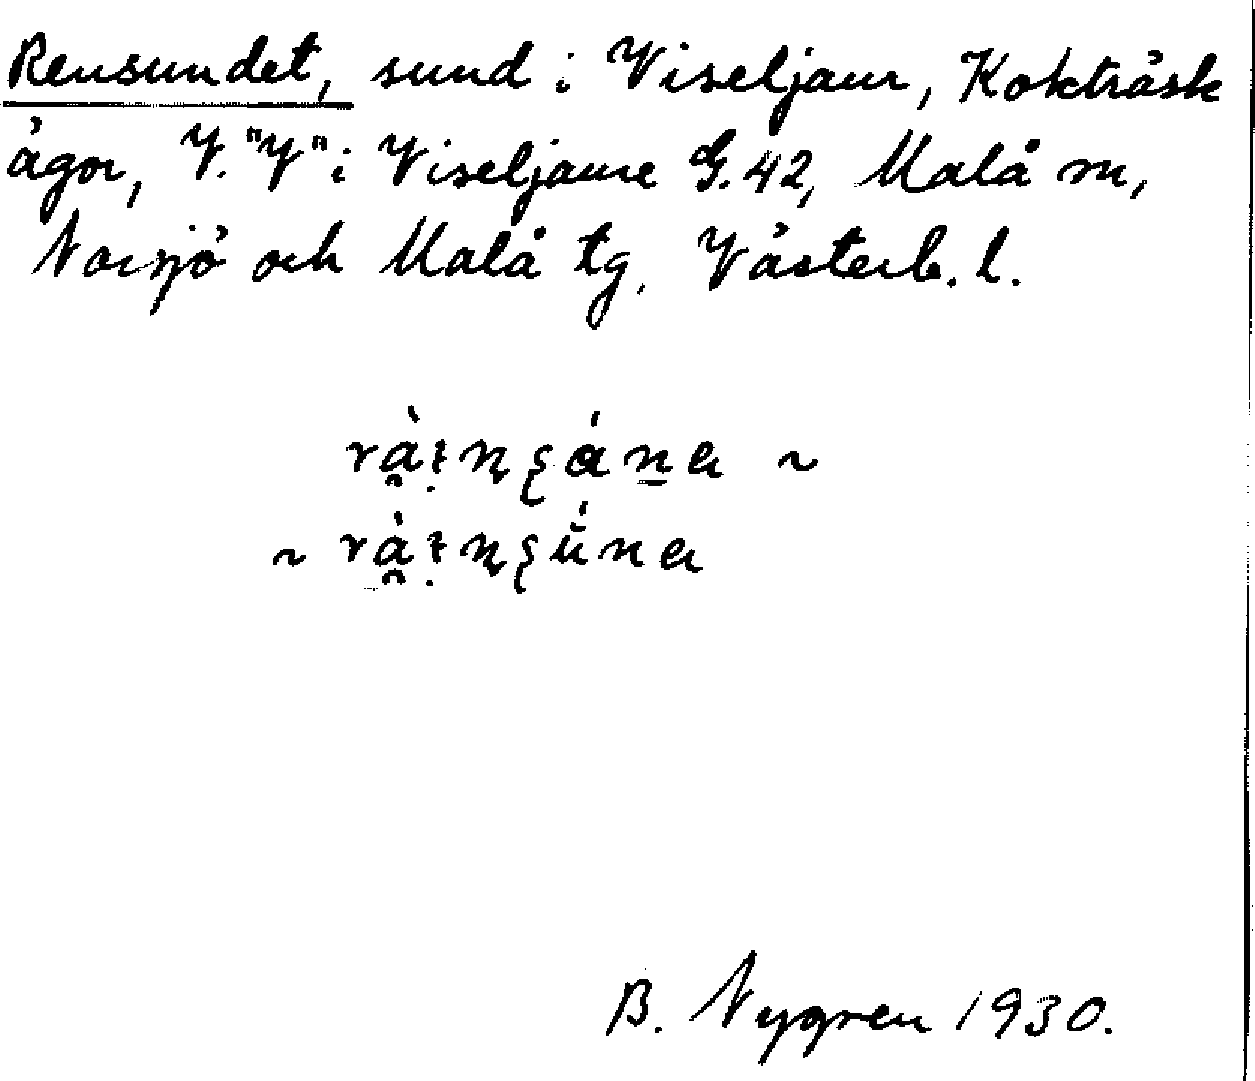 Rensundet, sund i Viseljaur, Kokträsk
ägor, V. "V" i Viseljaure G.42, Malå sn,
Norsjö och Malå tg, Västerb. l.
B. Nygren 1930.